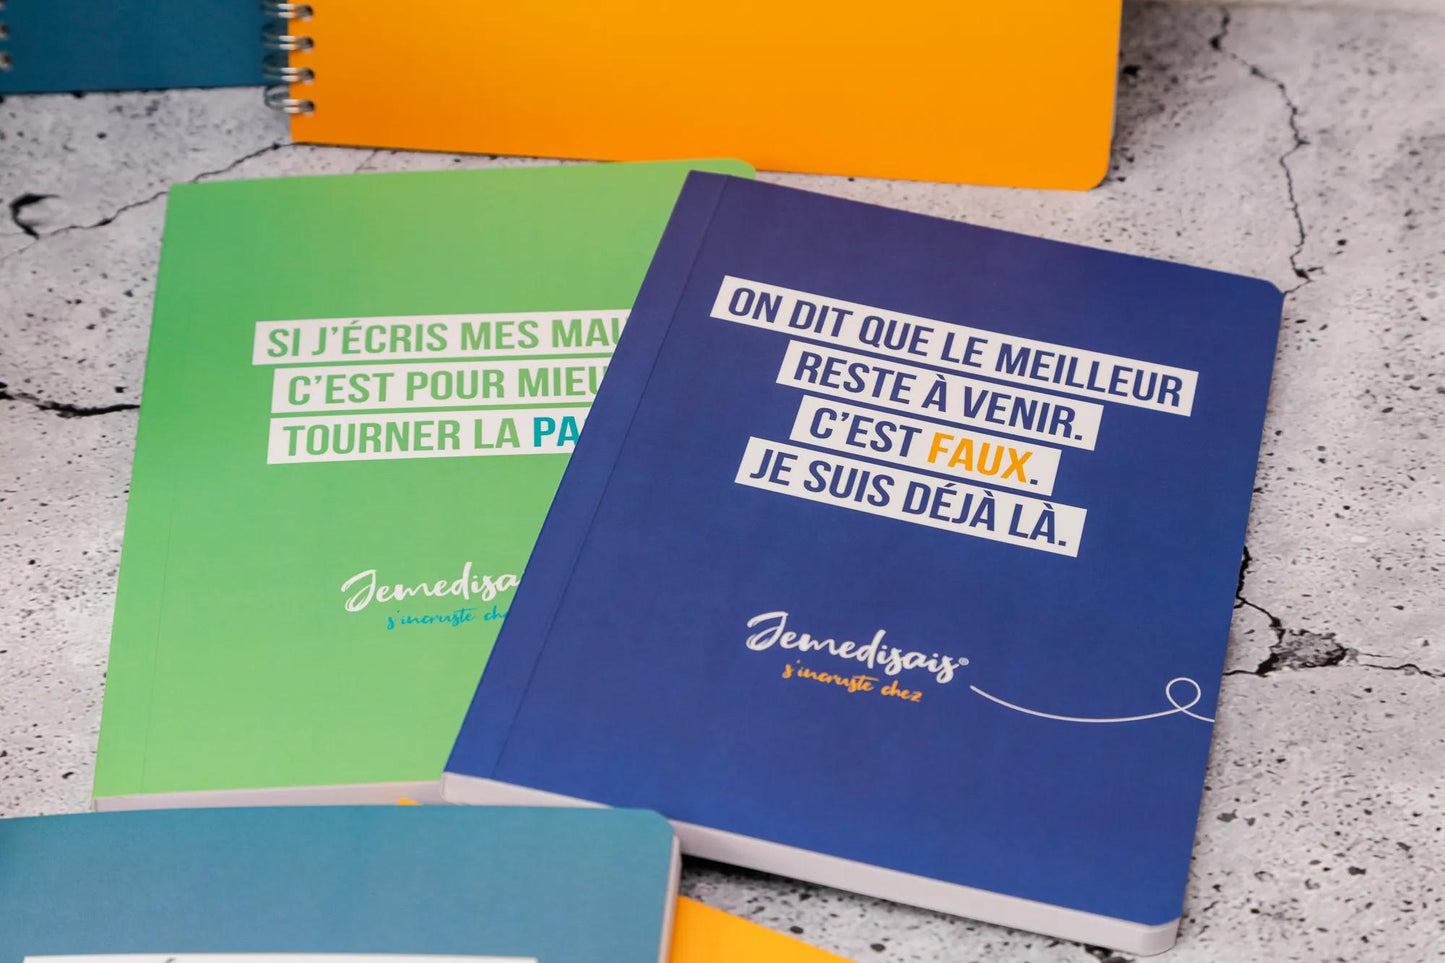 SI J'ÉCRIS MES
C'EST POUR
TOURNER LA
s'incruste
ON DIT QUE LE MEILLEUR
RESTE À VENIR.
C'EST FAUX.
JE SUIS DÉJÀ LÀ.
Jemedisais®
s'incruste chez